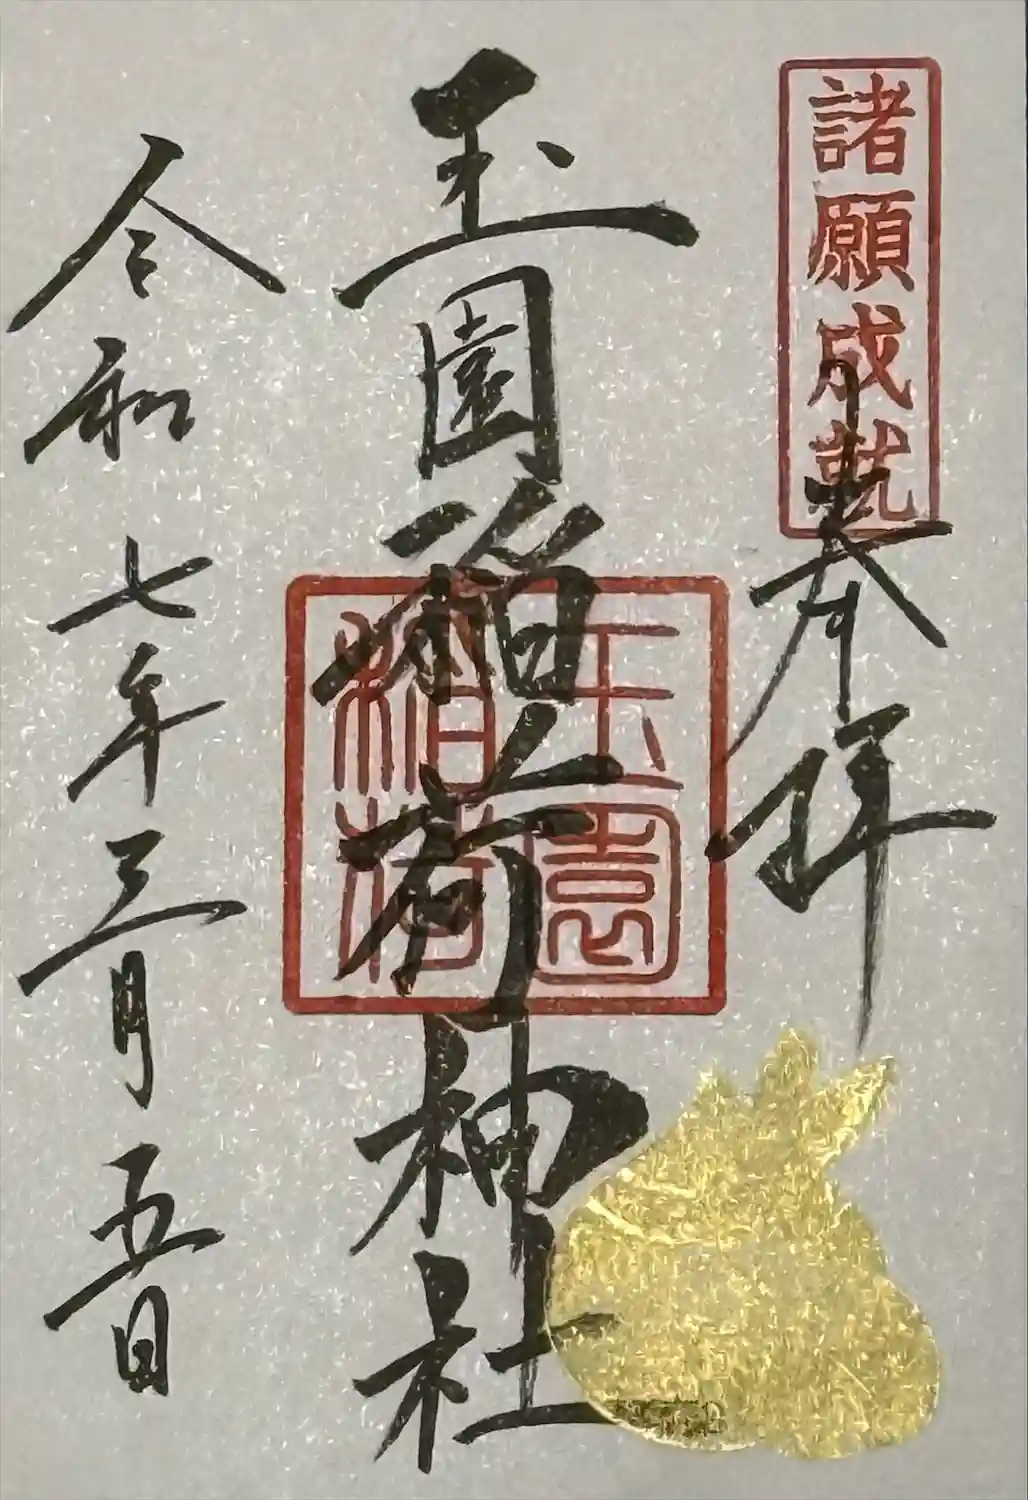 諸願成就
奉拝
玉園稲荷神社
玉園
稲荷
令和七年三月五日